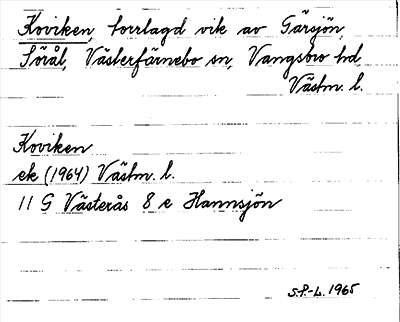 Koviken, torrlagd vik av Gärsjön,
Sörål, Västerfärnebo sn, Vangsbro hd,
Västm. l.
Koviken
ek (1964) Västm. l.
11 G Västerås 8 e Hannsjön
S.P.-L. 1965